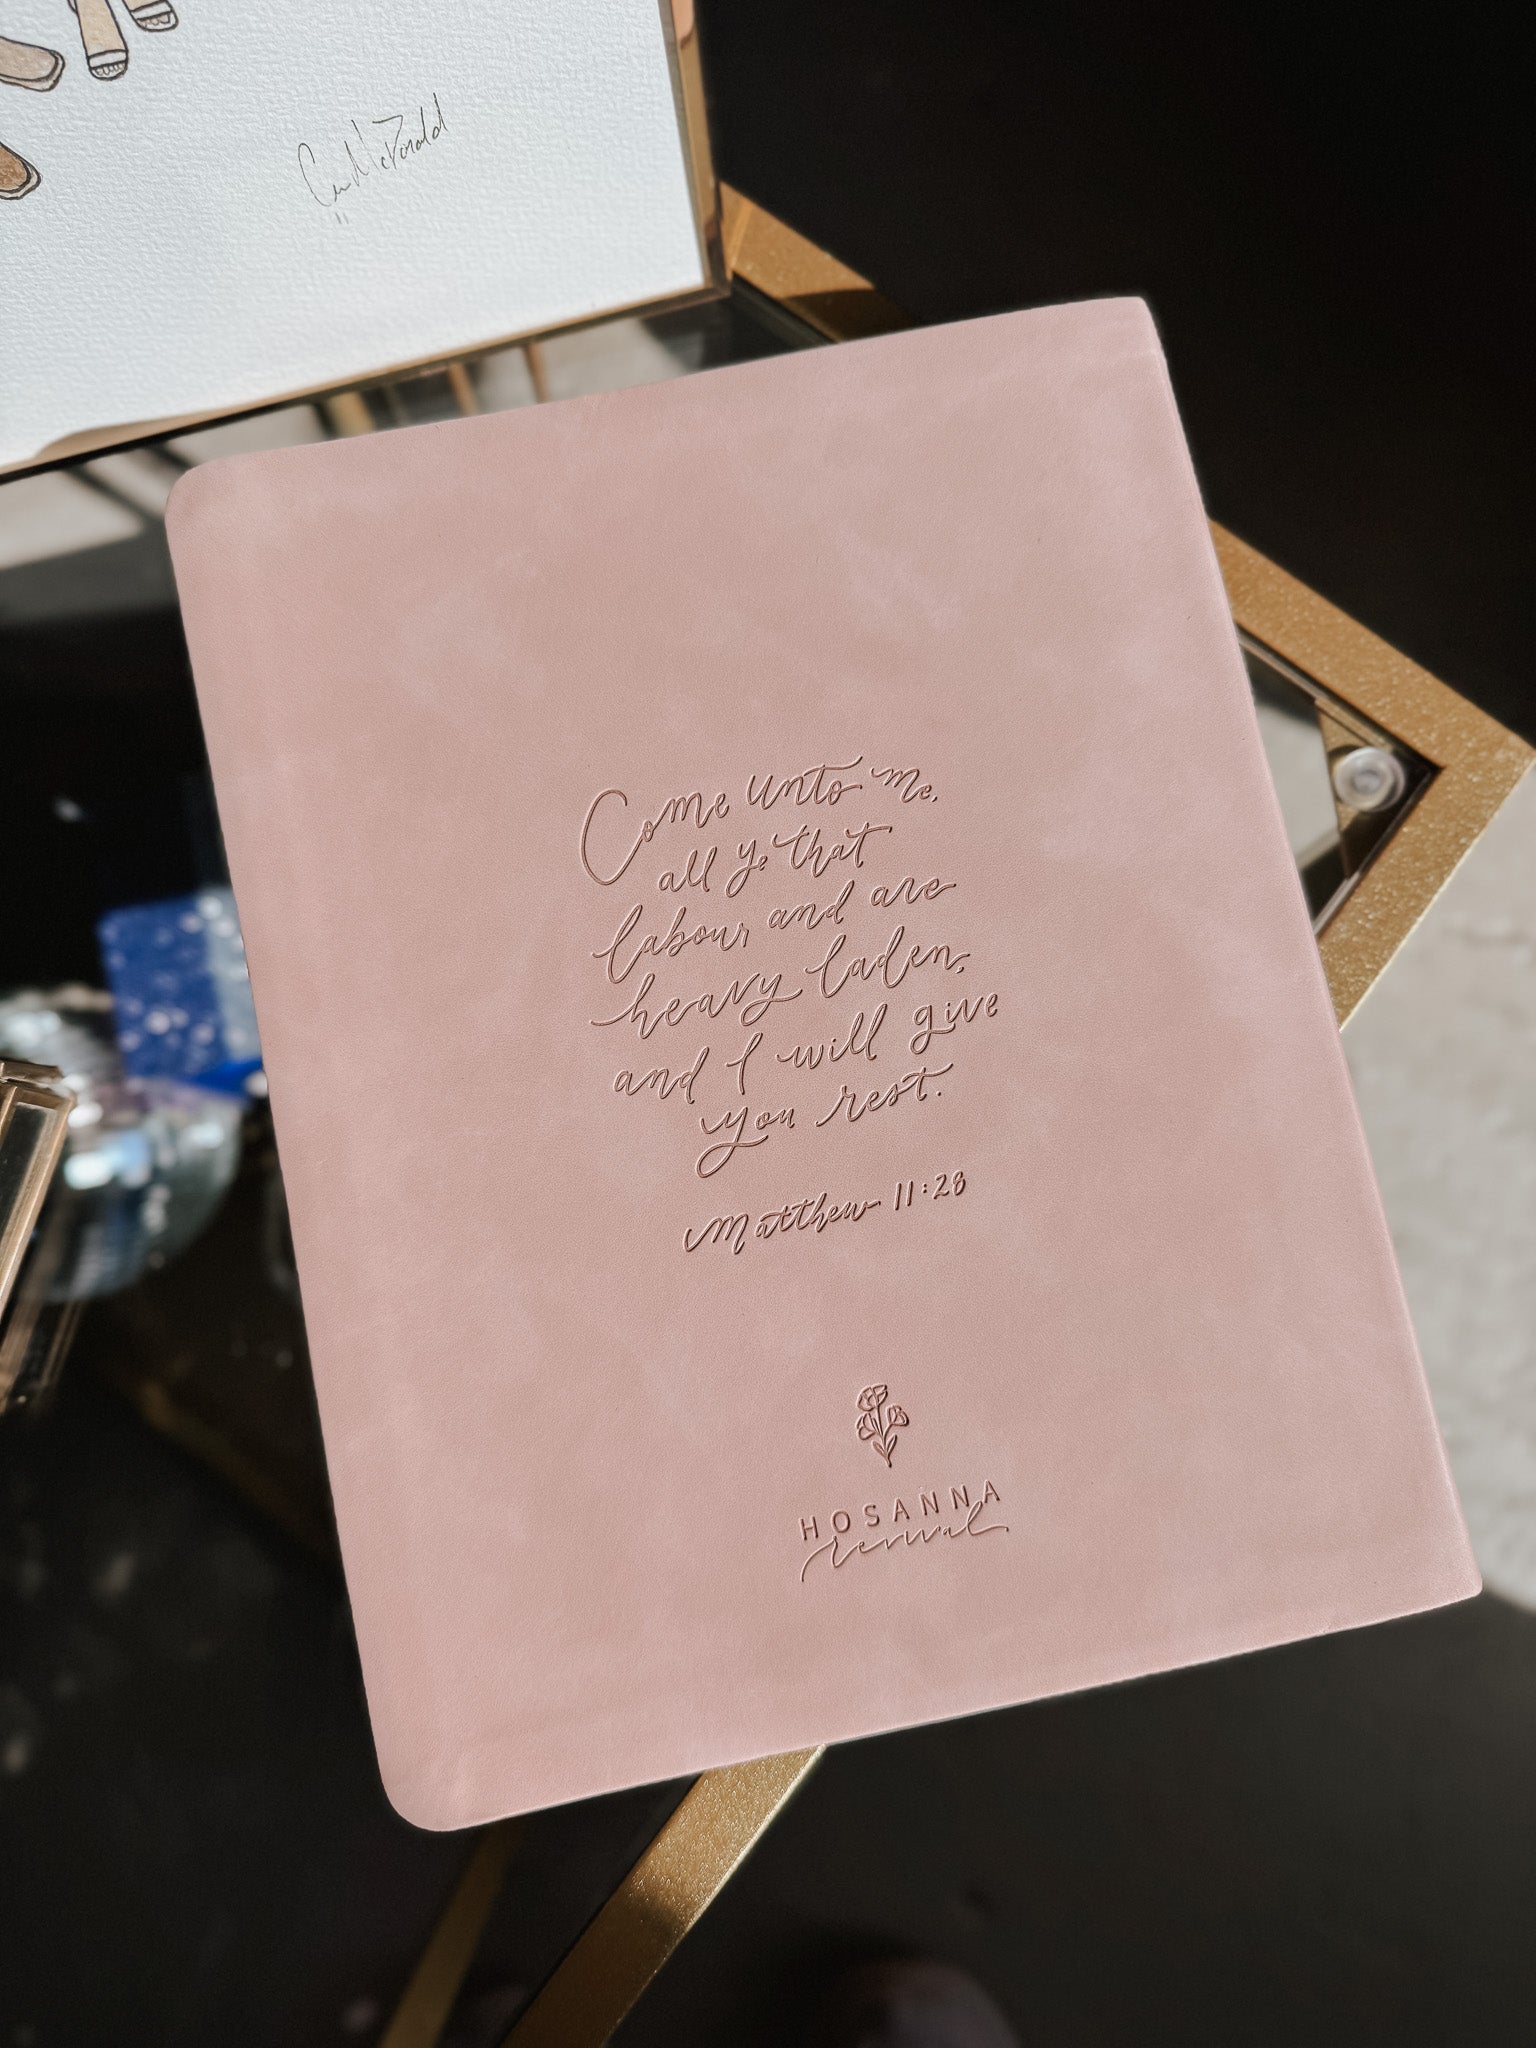 McDonald
Come unto me,
all ye that
labour and are
heavy laden,
and I will give
you rest.
Matthew 11:28
HOSANNA
revival